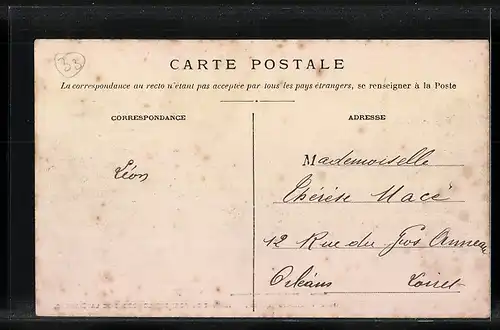 33
CARTE POSTALE
La correspondance au recto n'étant pas acceptée par tous les pays étrangers, se renseigner à la Poste
CORRESPONDANCE
ADRESSE
Léon
Mademoiselle
Thérèse Macé
12 Rue du Gros Anneau
Orléans Loiret